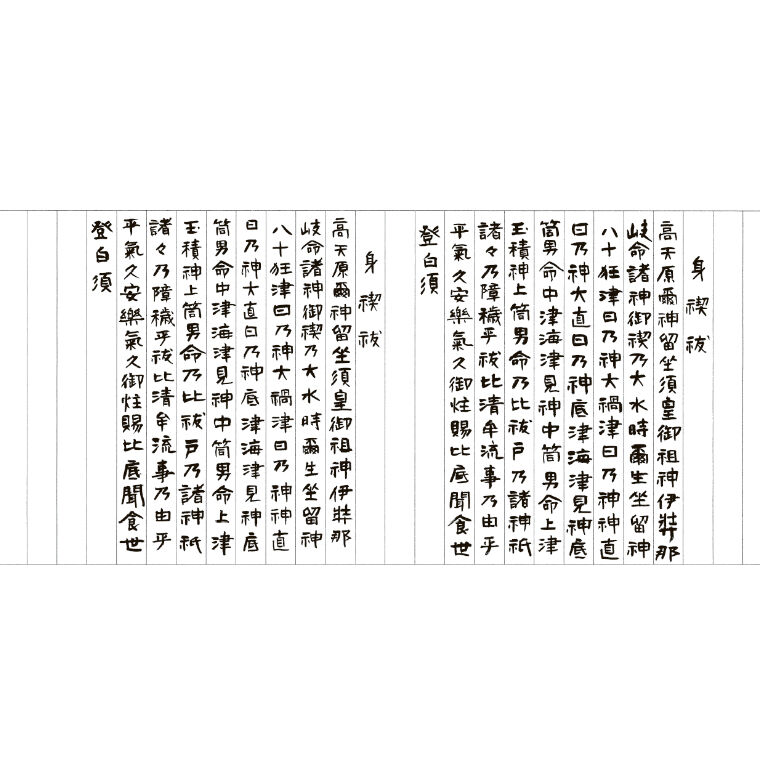 身禊祓
高天原爾神留坐須皇御祖神伊弉那
岐命諸神御禊乃大水時爾生坐留神
八十狂津日乃神大禍津日乃神神直
日乃神大直日乃神底津海津見神底
筒男命中津海津見神中筒男命上津
玉積神上筒男命乃比祓戸乃諸神祇
諸々乃障穢乎祓比清牟流事乃由乎
平氣久安樂氣久御炷賜比底聞食世
登白須
身禊祓
高天原爾神留坐須皇御祖神伊弉那
岐命諸神御禊乃大水時爾生坐留神
八十狂津日乃神大禍津日乃神神直
日乃神大直日乃神底津海津見神底
筒男命中津海津見神中筒男命上津
玉積神上筒男命乃比祓戸乃諸神祇
諸々乃障穢乎祓比清牟流事乃由乎
平氣久安樂氣久御炷賜比底聞食世
登白須